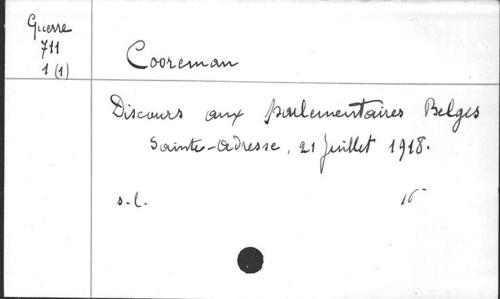 Guerre
711
1 (1)
Cooreman
Discours aux parlementaires Belges
Sainte-Adresse, 21 Juillet 1918.
s.l.